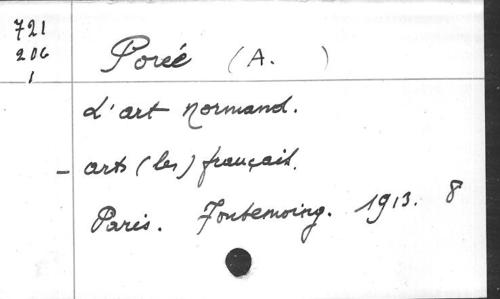 721
206
1
Porée (A. )
L'art normand.
- arts (les) français.
Paris. Fontemoing. 1913. 8